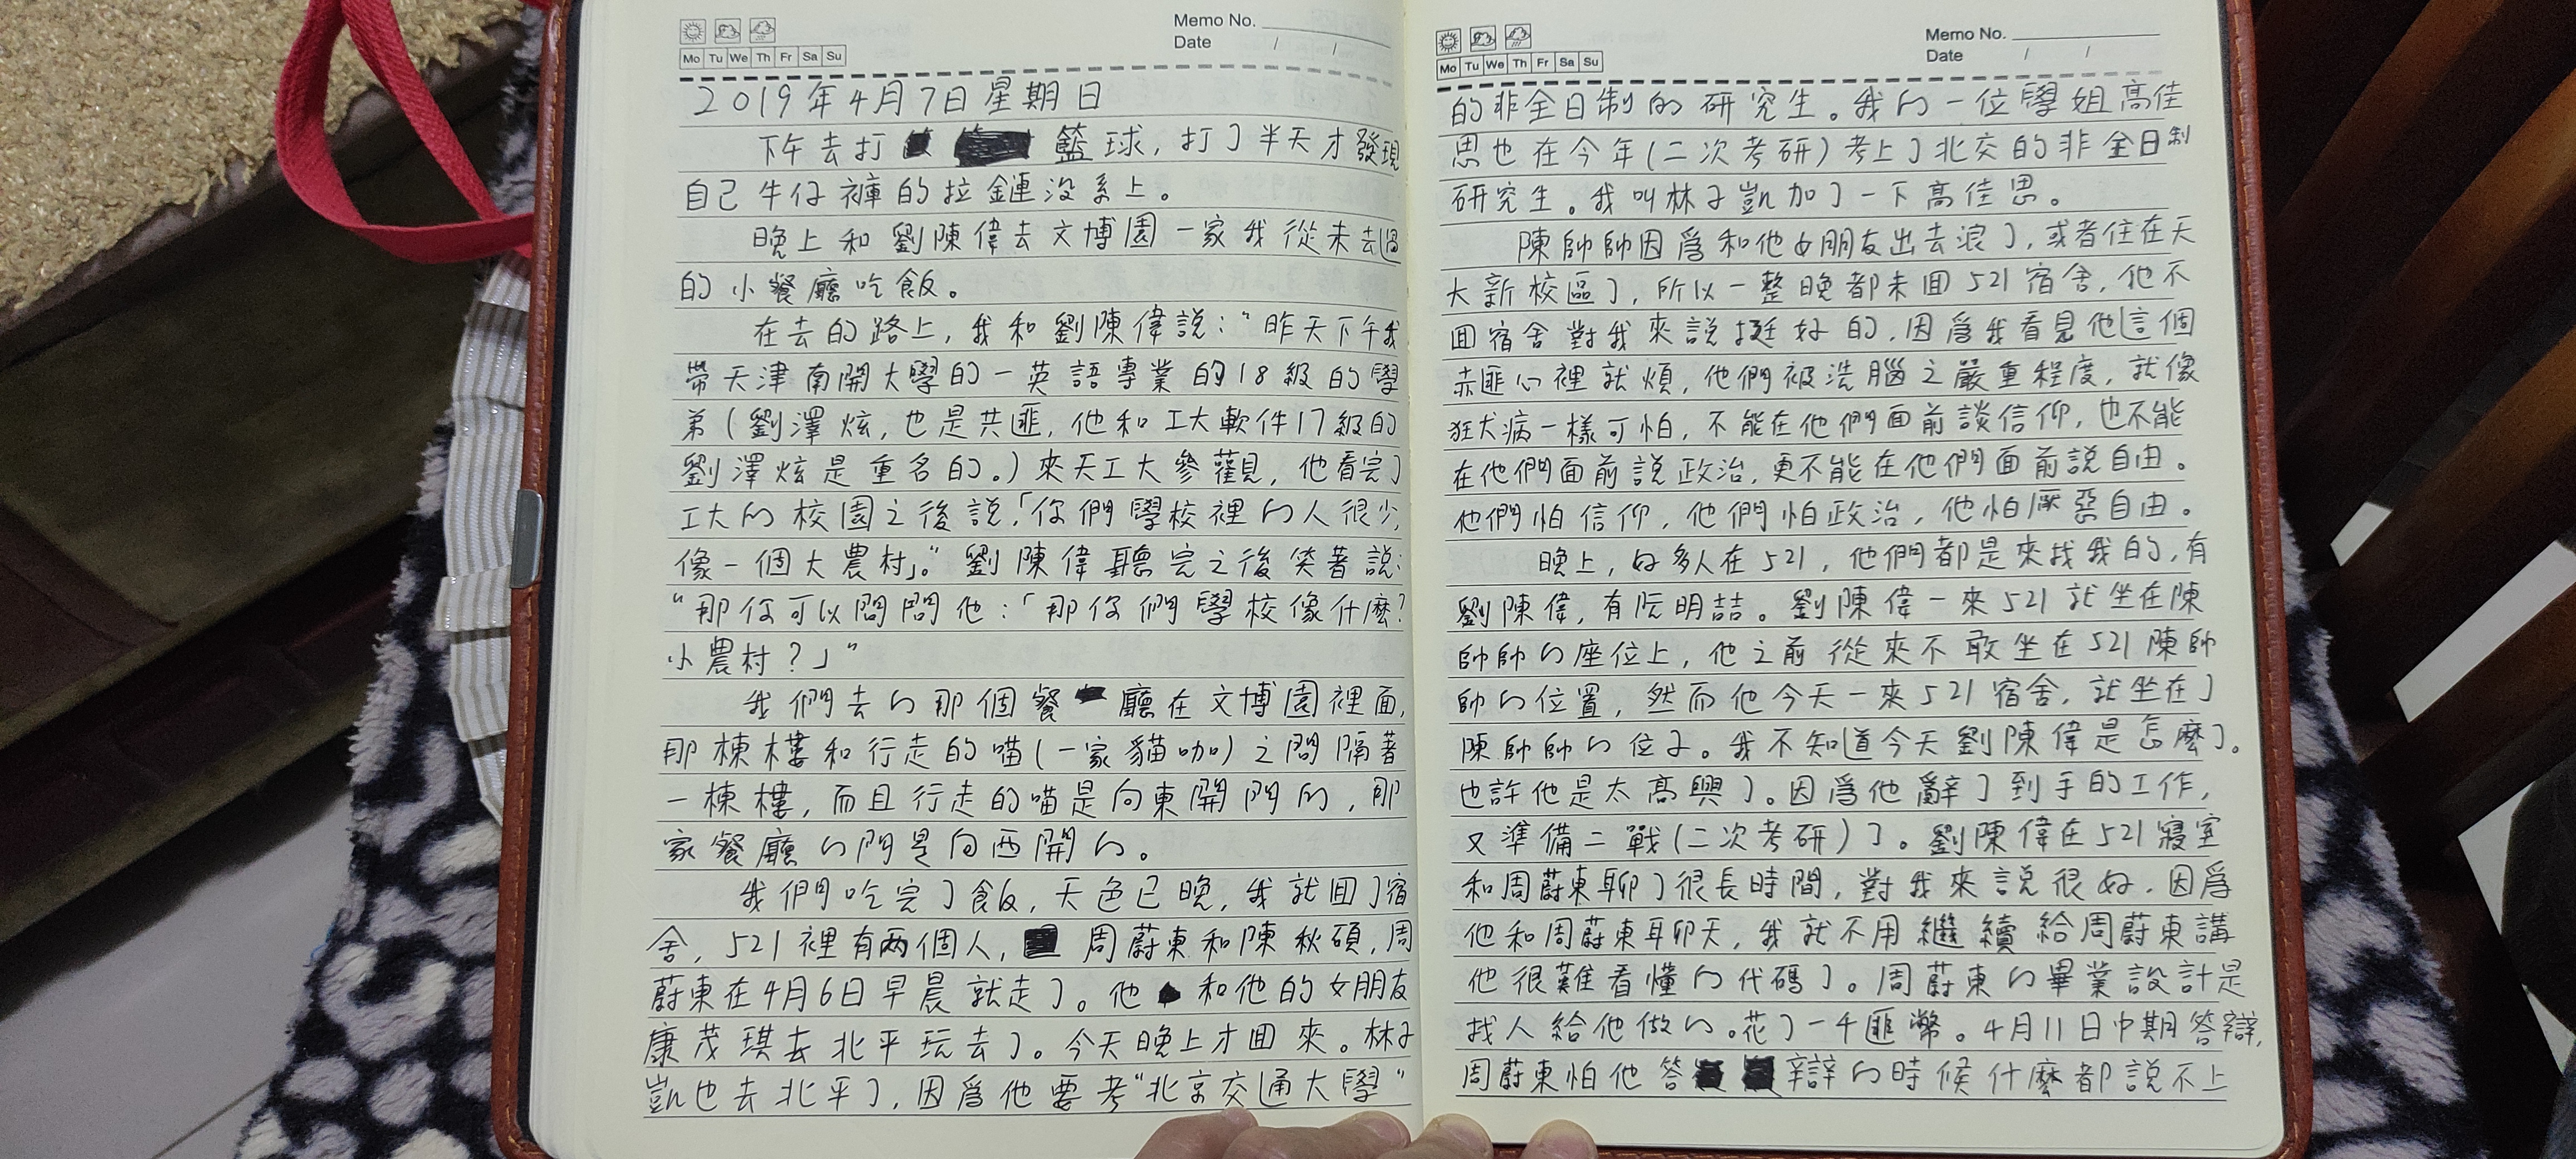 Memo No.
Mo Tu We Th Fr Sa Su
Date / /
2019年4月7日星期日
下午去打籃球，打了半天才發現
自己牛仔褲的拉鏈沒系上。
晚上和劉陳偉去文博園一家我從未去過
的小餐廳吃飯。
在去的路上，我和劉陳偉説：“昨天下午我
帶天津南開大學的一英語專業的18級的學
弟（劉澤炫，也是共匪，他和工大軟件17級的
劉澤炫是重名的。）來天工大參觀，他看完了
工大的校園之後説，「你們學校裡的人很少，
像一個大農村」。”劉陳偉聽完之後笑著説：
“那你可以問問他：「那你們學校像什麼？
小農村？」”
我們去的那個餐廳在文博園裡面，
那棟樓和行走的喵（一家貓咖）之間隔著
一棟樓，而且行走的喵是向東開門的，那
家餐廳的門是向西開的。
我們吃完了飯，天色已晚，我就回了宿
舍，521裡有两個人，周蔚東和陳秋碩，周
蔚東在4月6日早晨就走了。他和他的女朋友
康茂琪去北平玩去了。今天晚上才回來。林子
凱也去北平了，因爲他要考“北京交通大學”
Memo No.
Mo Tu We Th Fr Sa Su
Date / /
的非全日制的研究生。我的一位學姐高佳
思也在今年（二次考研）考上了北交的非全日制
研究生。我叫林子凱加了一下高佳思。
陳帥帥因爲和他女朋友出去浪了，或者住在天
大新校區了，所以一整晚都未回521宿舍，他不
回宿舍對我來説挺好的，因爲我看見他這個
赤匪心裡就煩，他們被洗腦之嚴重程度，就像
狂犬病一樣可怕，不能在他們面前談信仰，也不能
在他們面前説政治，更不能在他們面前説自由。
他們怕信仰，他們怕政治，他怕厭惡自由。
晚上，好多人在521，他們都是來找我的，有
劉陳偉，有阮明喆。劉陳偉一來521就坐在陳
帥帥的座位上，他之前從來不敢坐在521陳帥
帥的位置，然而他今天一來521宿舍，就坐在了
陳帥帥的位子。我不知道今天劉陳偉是怎麼了。
也許他是太高興了。因爲他辭了到手的工作，
又準備二戰（二次考研）了。劉陳偉在521寢室
和周蔚東聊了很長時間，對我來説很好，因爲
他和周蔚東聊天，我就不用繼續給周蔚東講
他很難看懂的代碼了。周蔚東的畢業設計是
找人給他做的。花了一千匪幣。4月11日中期答辯，
周蔚東怕他答辯的時候什麼都説不上